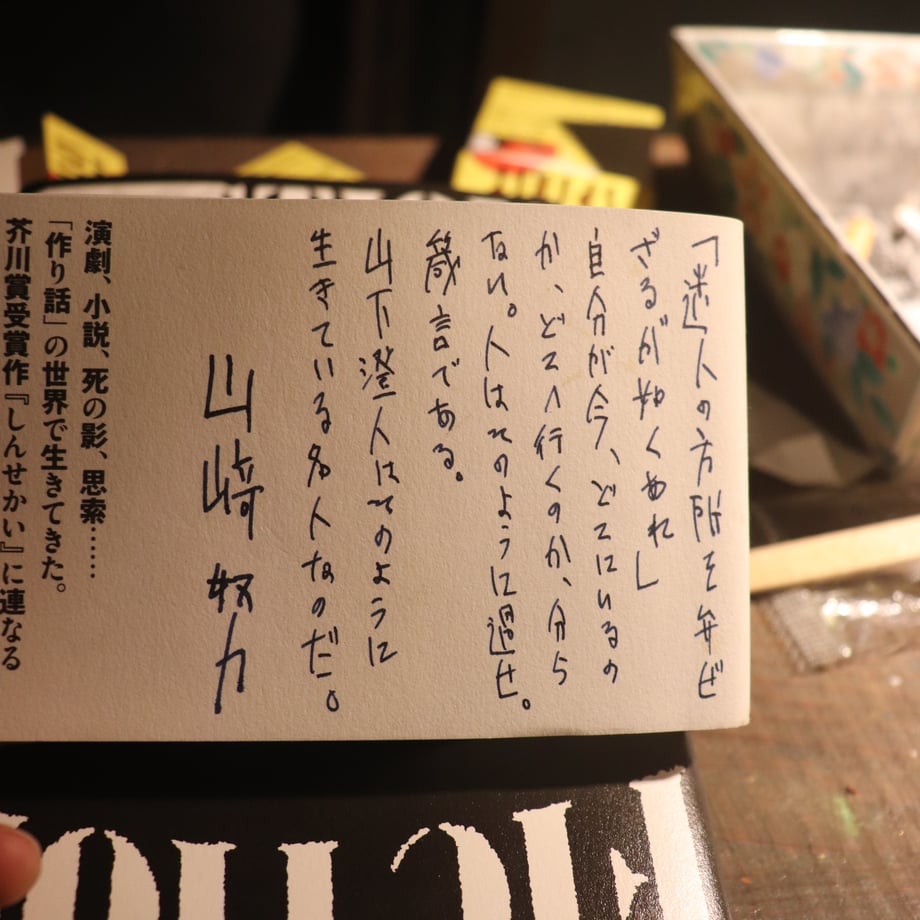 「迷人の方所を弁ぜ
ざるが如くあれ」
自分が今、どこにいるの
か、どこへ行くのか、分ら
ない。人はそのように過せ。
箴言である。
山下澄人はそのように
生きている名人なのだ。
山﨑努
演劇、小説、死の影、思索……
「作り話」の世界で生きてきた。
芥川賞受賞作『しんせかい』に連なる
FICTION